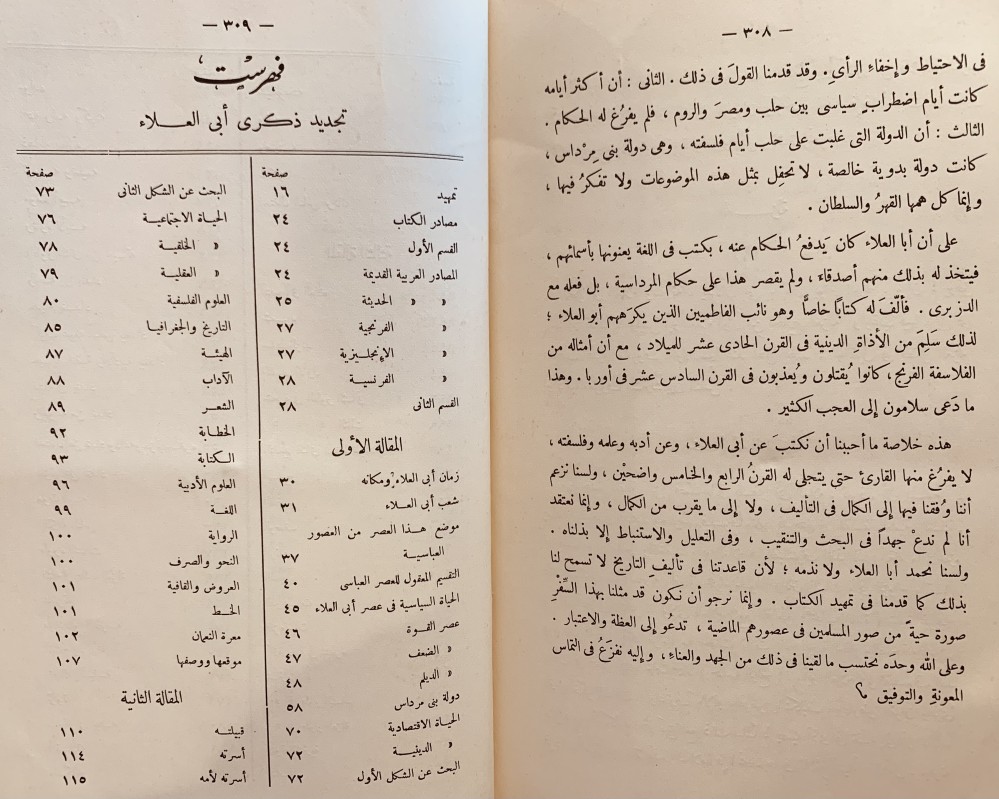 — ٣٠٨ —
فى الاحتياط وإخفاءِ الرأىِ. وقد قدمنا القولَ فى ذلك. الثانى: أن أكثر أيامه
كانت أيام اضطرابٍ سياسى بين حلب ومصرَ والروم، فلم يفرُغ له الحكام.
الثالث: أن الدولة التى غلبت على حلب أيام فلسفته، وهى دولة بنى مِرْداس،
كانت دولة بدوية خالصة، لا تحفِل بمثل هذه الموضوعات ولا تفكرُ فيها،
وإنما كل همها القهرُ والسلطان.
على أن أبا العلاء كان يَدفعُ الحكام عنه، بكتب فى اللغة يعنونها بأسمائهم،
فيتخذ له بذلك منهم أصدقاءَ، ولم يقصر هذا على حكام المرداسية، بل فعله مع
الدزبرى. فألّف له كتابًا خاصًّا وهو نائب الفاطميين الذين يكرههم أبو العلاء؛
لذلك سَلِمَ من الأذاةِ الدينية فى القرن الحادى عشر للميلاد، مع أن أمثاله من
الفلاسفة الفرنج، كانوا يُقتلون ويُعذبون فى القرن السادس عشر فى أوربا. وهذا
ما دَعى سلامون إلى العجب الكثير.
هذه خلاصة ما أحببنا أن نكتبَ عن أبى العلاء، وعن أدبه وعلمه وفلسفته،
لا يفرُغ منها القارئ حتى يتجلى له القرنُ الرابع والخامس واضحيْن، ولسنا نزعم
أننا وُفقنا فيها إلى الكمال فى التأليف، ولا إلى ما يقرب من الكمال، وإنما نعتقد
أنا لم ندعْ جهداً فى البحث والتنقيب، وفى التعليل والاستنباط إلا بذلناه.
ولسنا نحمد أبا العلاء ولا نذمه؛ لأن قاعدتنا فى تأليفِ التاريخ لا تسمح لنا
بذلك كما قدمنا فى تمهيد الكتاب. وإنما نرجو أن نكون قد مثلنا بهذا السِّفْرِ
صورة حيةً من صور المسلمين فى عصورهم الماضية، تدعُو إلى العظة والاعتبار.
وعلى الله وحدَه نحتسب ما لقينا فى ذلك من الجهد والعناءِ، وإليه نفزَعُ فى التماس
المعونةِ والتوفيق م؟
— ٣٠٩ —
فهرست
تجديد ذكرى أبى العلاء
صفحة
تمهيد ١٦
مصادر الكتاب ٢٤
القسم الأول ٢٤
المصادر العربية القديمة ٢٤
» » الحديثة ٢٥
» الفرنجية ٢٧
» الإنجليزية ٢٧
» الفرنسية ٢٨
القسم الثانى ٢٨
المقالة الأولى
زمان أبى العلاء ومكانه ٣٠
شعب أبى العلاء ٣١
موضع هذا العصر من العصور
العباسية ٣٧
التقسيم المعقول للعصر العباسى ٤٠
الحياة السياسية فى عصر أبى العلاء ٤٥
عصر القوة ٤٦
» الضعف ٤٧
» الديلم ٤٨
دولة بنى مرداس ٥٨
الحياة الاقتصادية ٧٠
» الدينية ٧٢
البحث عن الشكل الأول ٧٢
صفحة
البحث عن الشكل الثانى ٧٣
الحياة الاجتماعية ٧٦
» الخلقية ٧٨
» العقلية ٧٩
العلوم الفلسفية ٨٠
التاريخ والجغرافيا ٨٥
الهيئة ٨٧
الآداب ٨٨
الشعر ٨٩
الخطابة ٩٢
الكتابة ٩٣
العلوم الأدبية ٩٦
اللغة ٩٩
الرواية ١٠٠
النحو والصرف ١٠٠
العروض والقافية ١٠١
الخط ١٠١
معرة النعمان ١٠٢
موقعها ووصفها ١٠٧
المقالة الثانية
قبيلته ١١٠
أسرته ١١٤
أسرته لأمه ١١٥